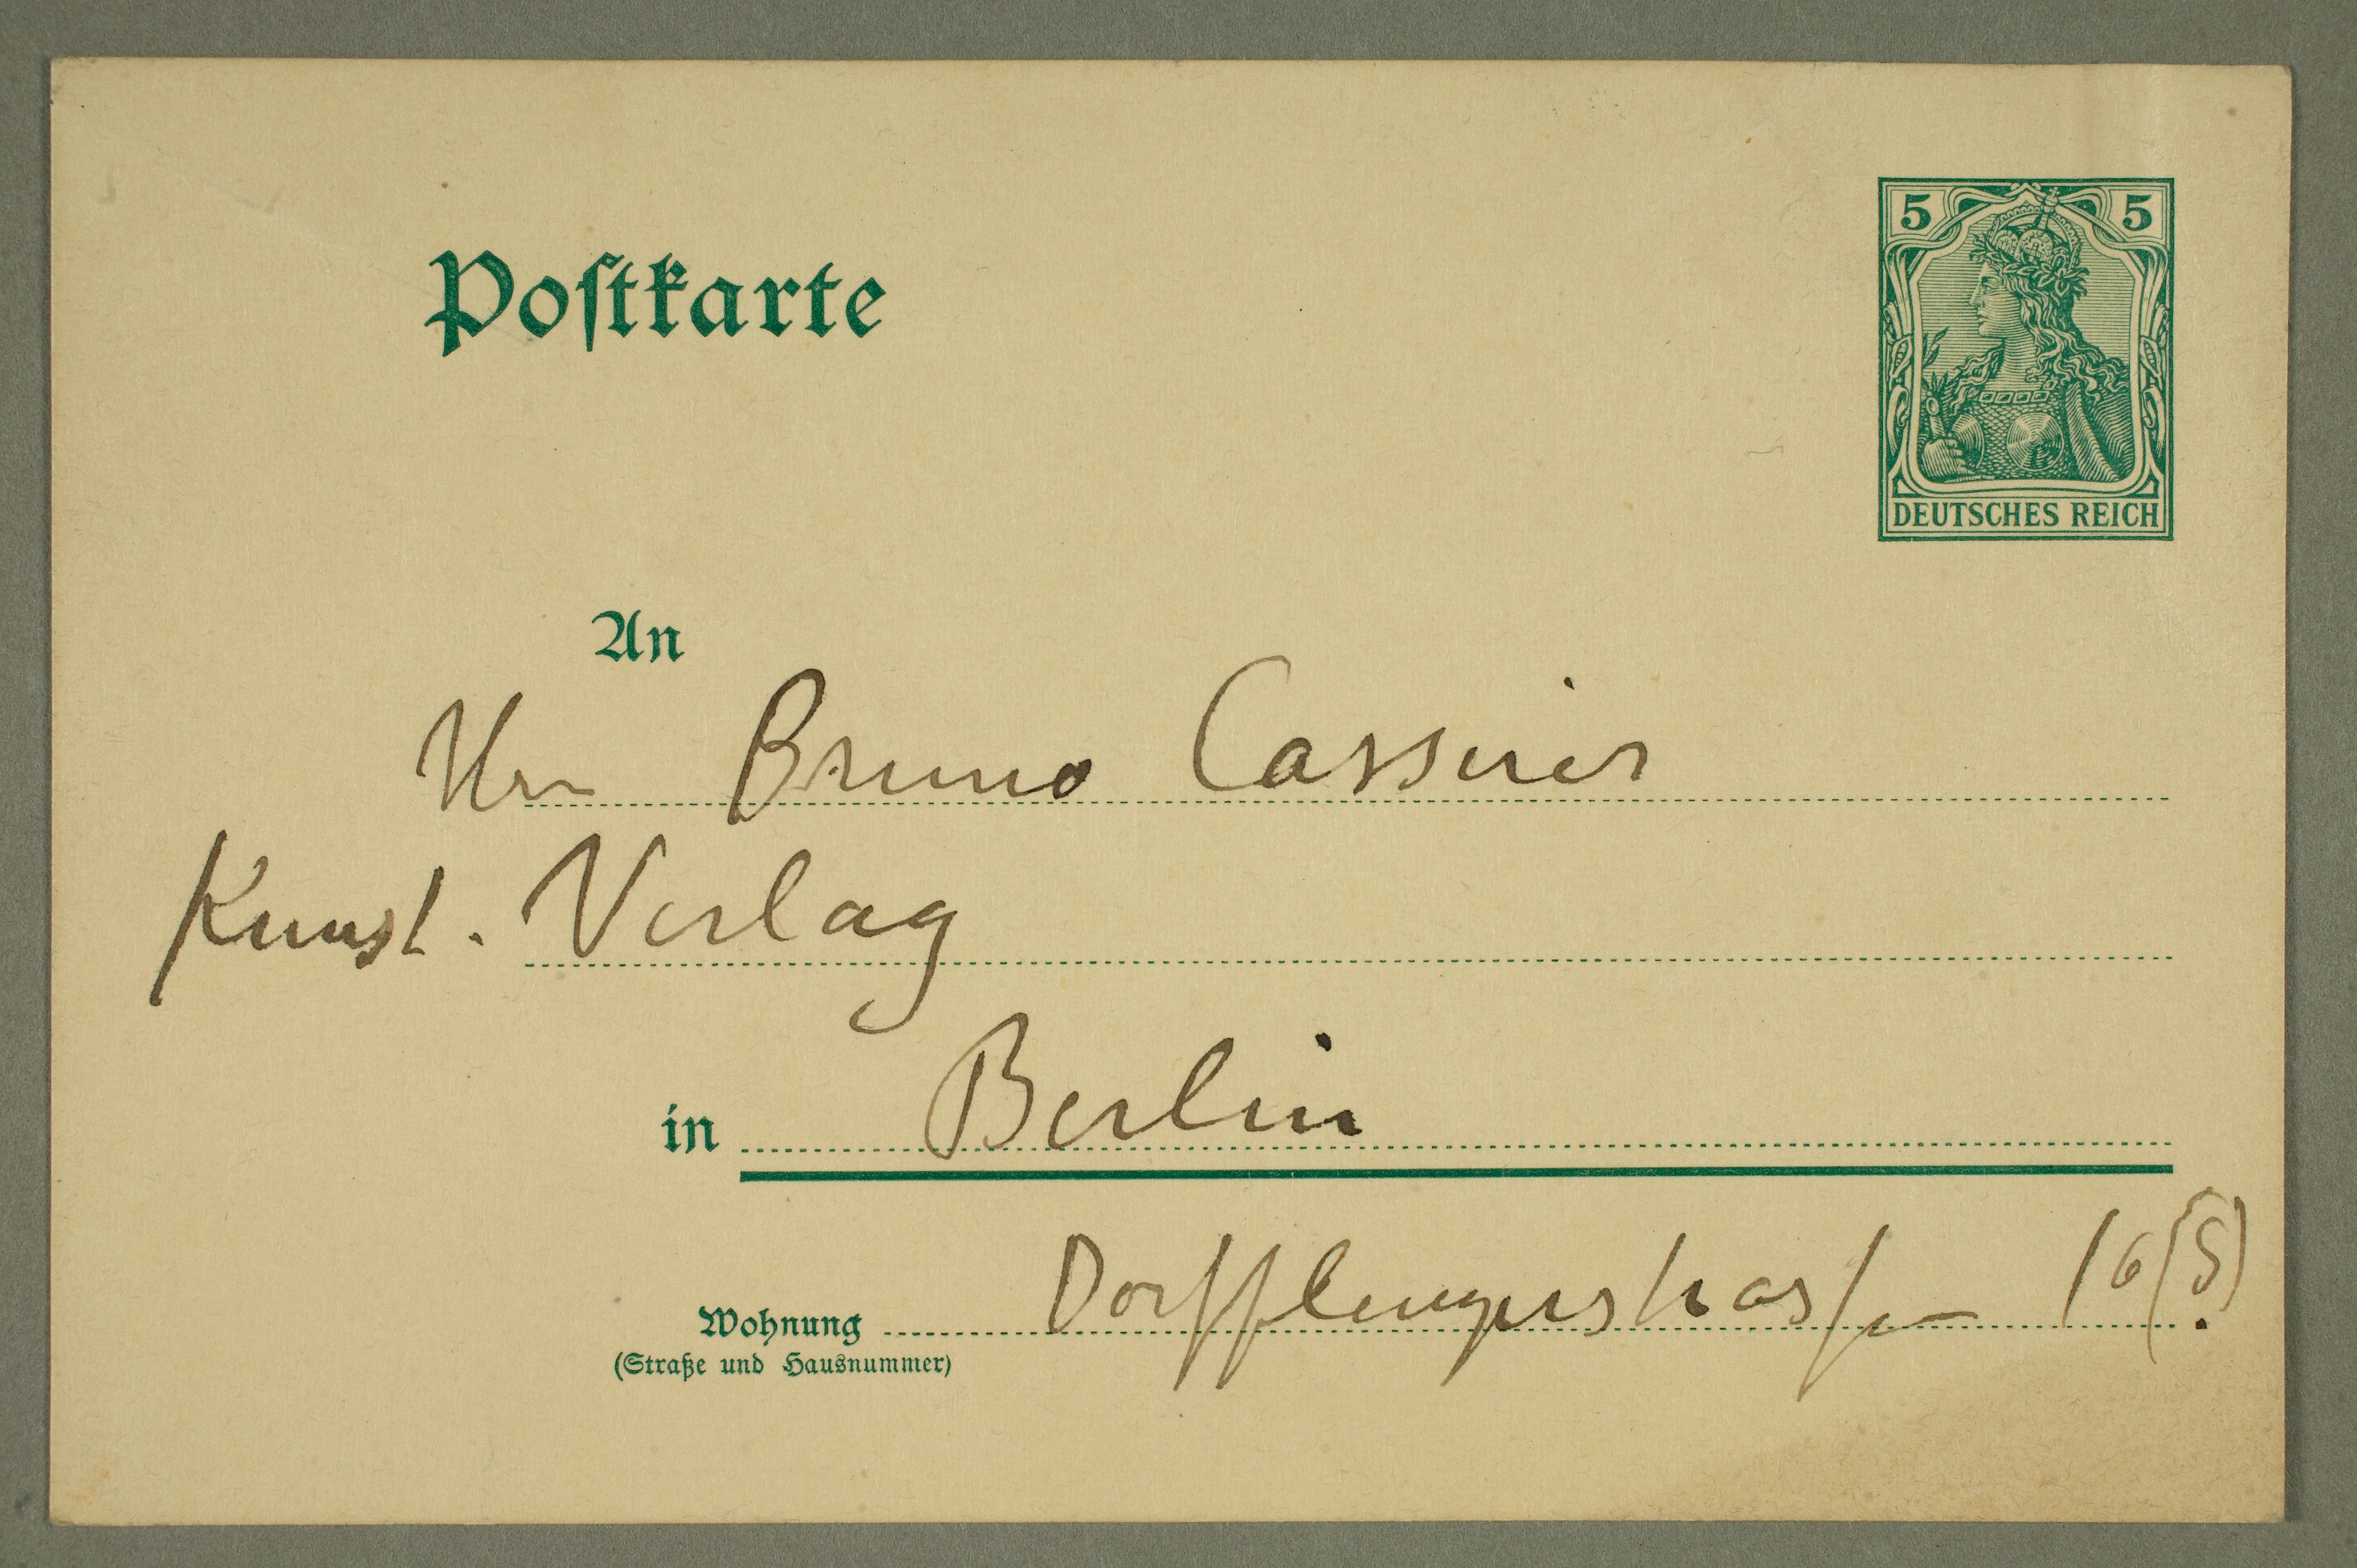 5 5
DEUTSCHES REICH
Postkarte
An
Hrn Bruno Cassirer
Kunst. Verlag
in Berlin
Wohnung Dorfflengerstrasse 16(5).
(Straße und Hausnummer)